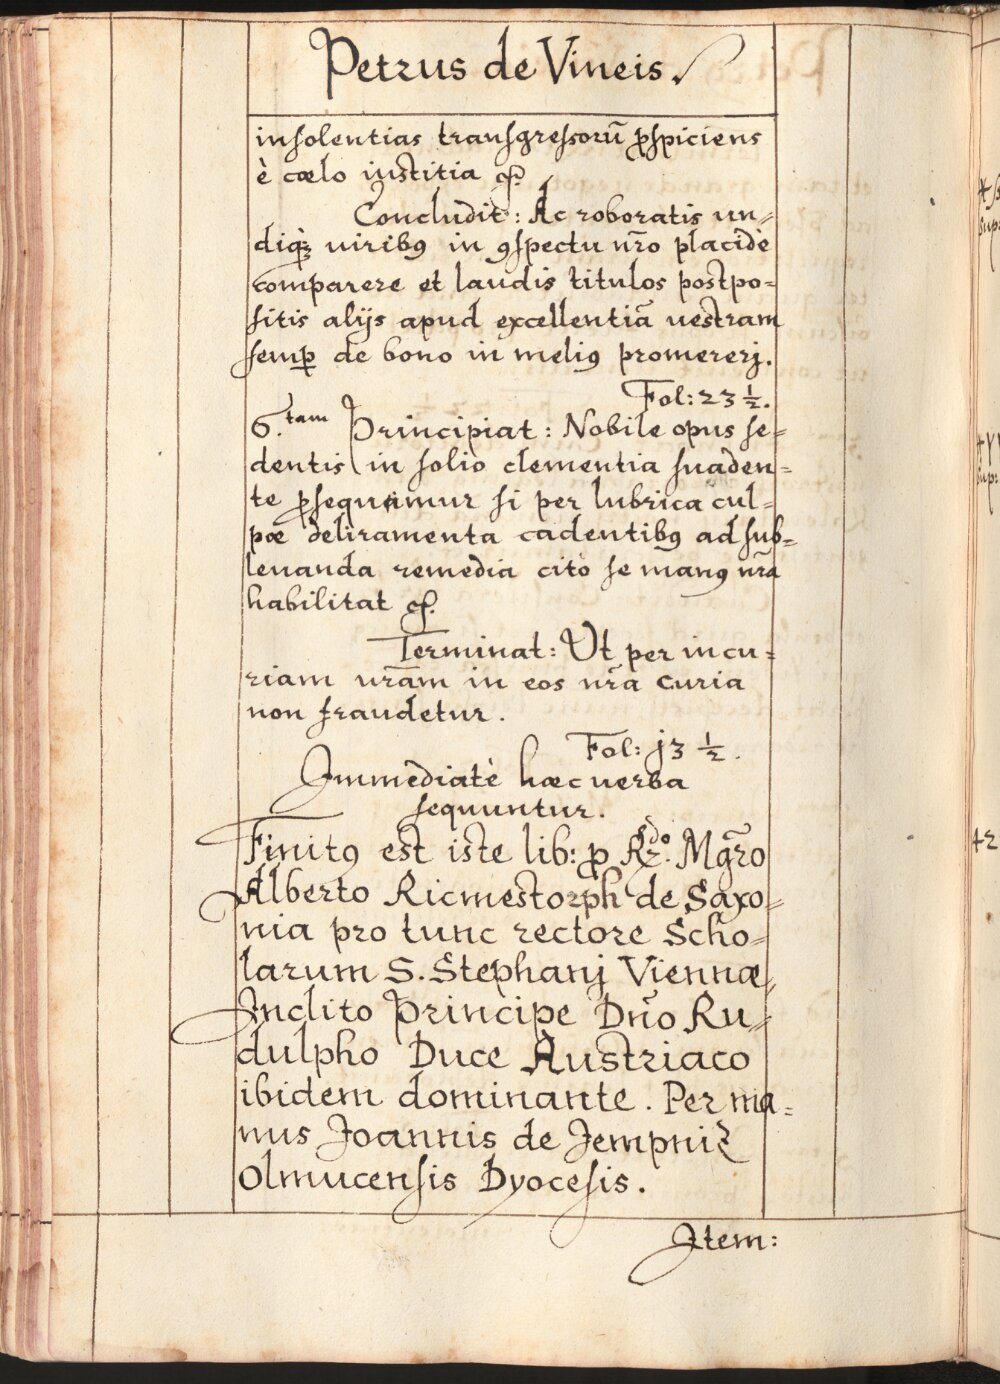 Petrus de Vineis.
insolentias transgressorũ ꝓspiciens
è cœlo iustitia &.
Concludit: Ac roboratis un-
diqꝫ viribꝰ in ꝯspectu nr̃o placidè
comparere et laudis titulos postpo-
sitis alijs apud excellentiã vestram
semꝑ de bono in meliꝰ promererj.
Fol: 23 ½.
6.tam Principiat: Nobile opus se-
dentis in solio clementia suaden-
te ꝓsequimur si per lubrica cul-
pæ deliramenta cadentibꝰ ad sub-
leuanda remedia citò se manꝰ nr̃a
habilitat &.
Terminat: Ut per incu-
riam nr̃am in eos nr̃a curia
non fraudetur.
Fol: j3 ½.
Immediatè hæc uerba
sequuntur.
Finitꝰ est iste lib: ꝓ Rdo. Mgr̃o
Alberto Ricmestorph de Saxo-
nia pro tunc rectore Scho-
larum S. Stephanj Viennæ,
Inclito Principe Dño Ru-
dulpho Duce Austriaco
ibidem dominante. Per ma-
nus Joannis de Jempniz
Olmucensis Dyocesis.
Item: